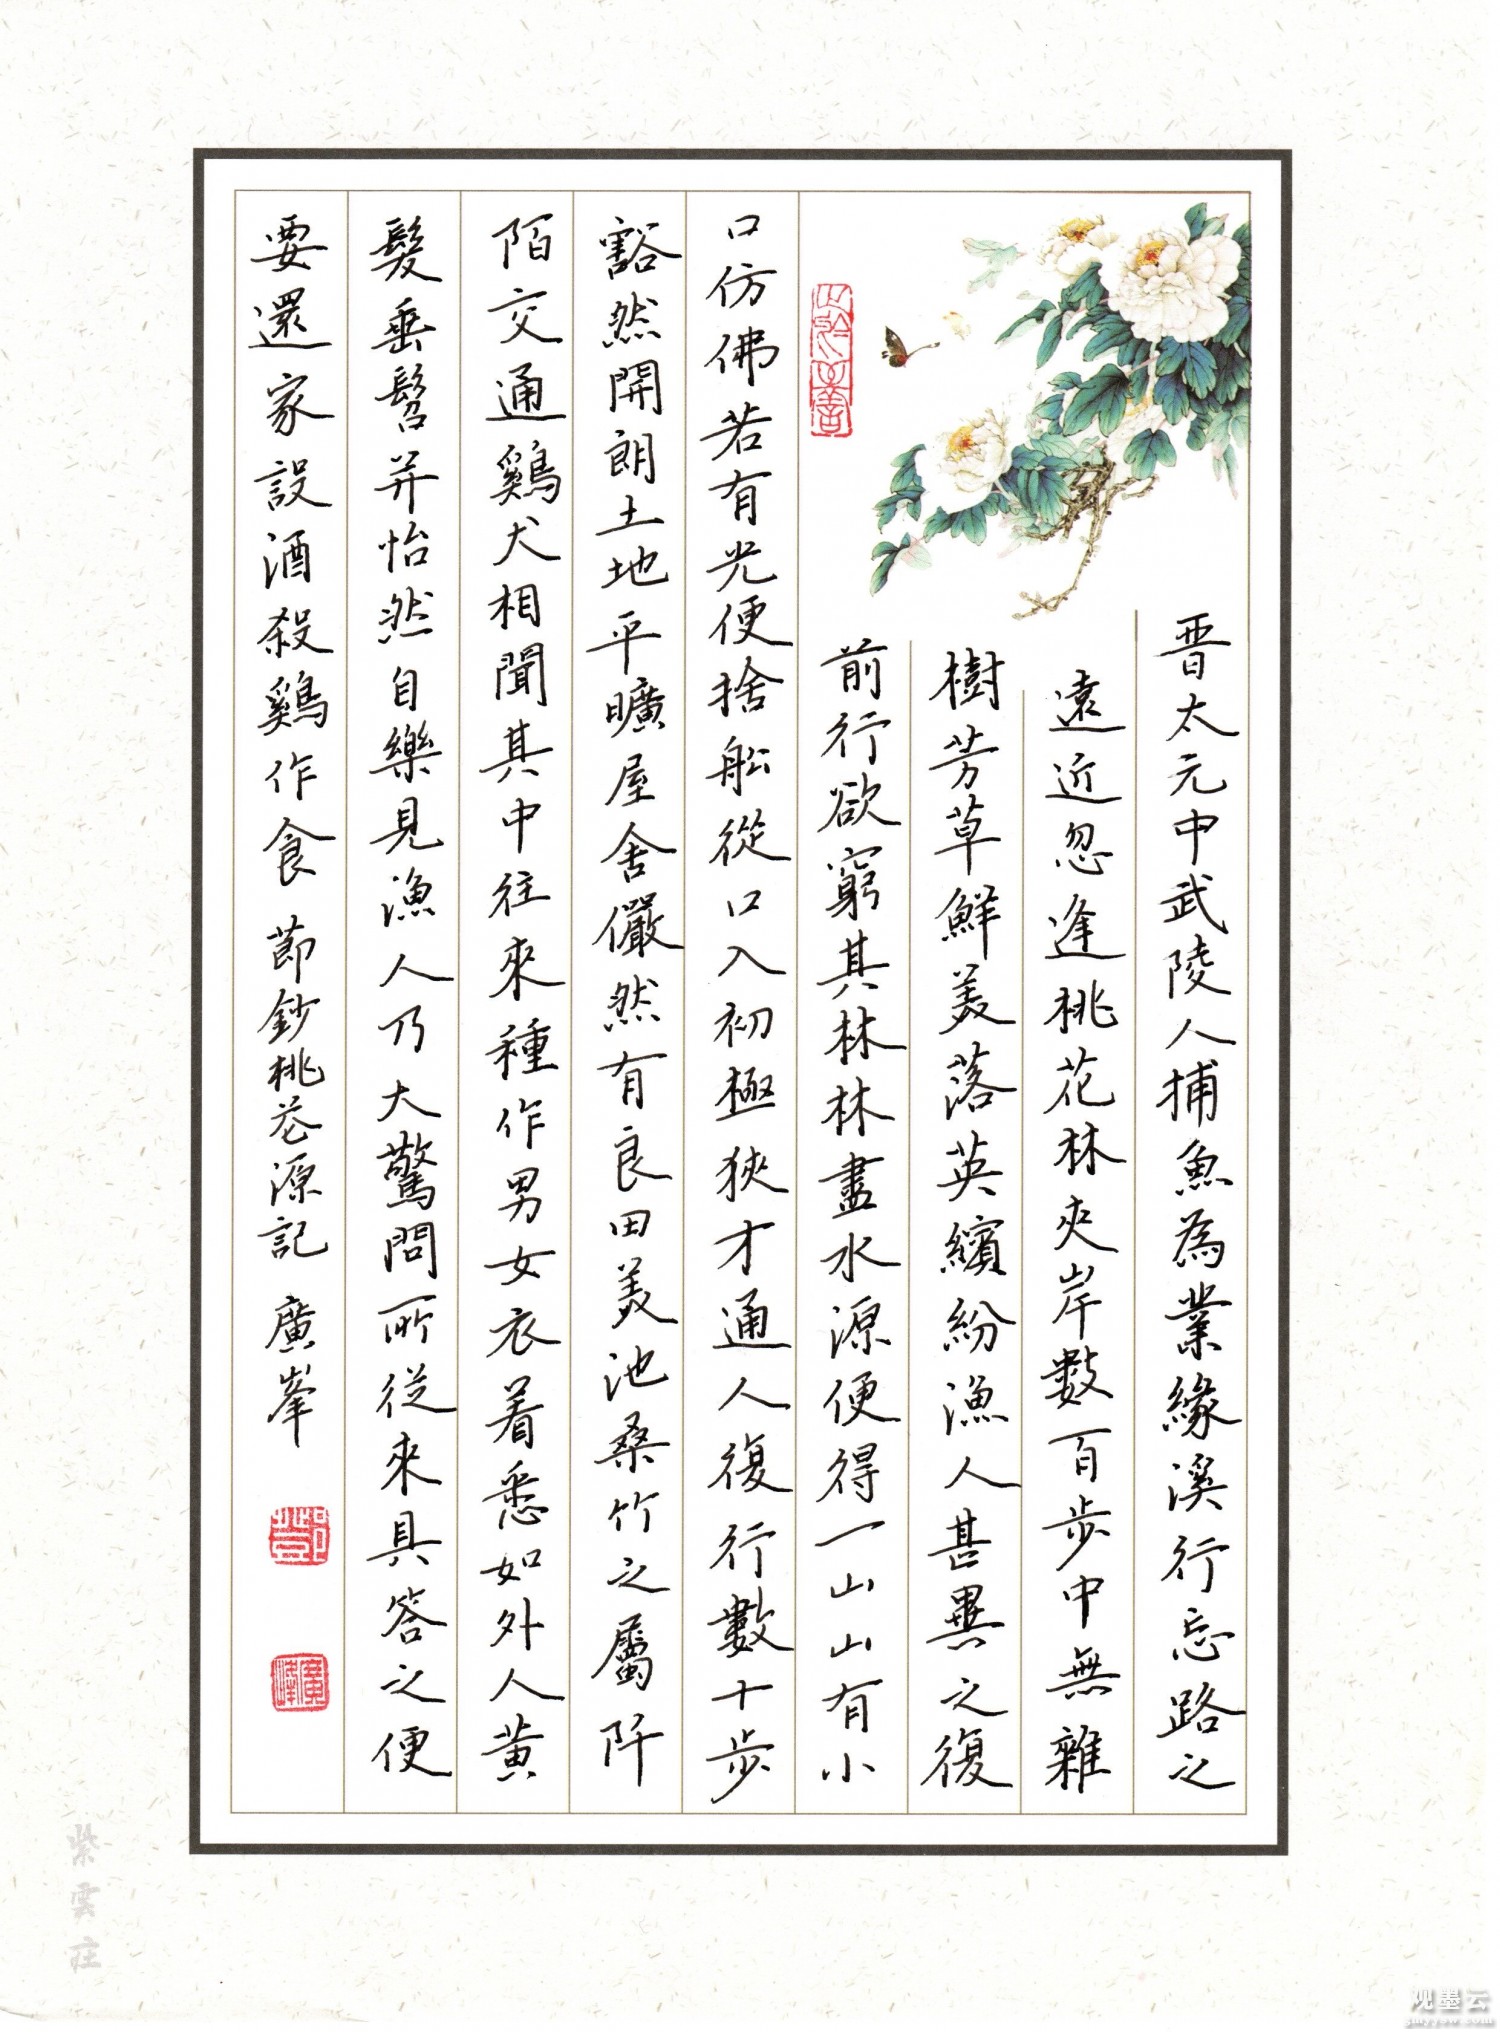 晋太元中武陵人捕魚為業緣溪行忘路之
遠近忽逢桃花林夾岸數百步中無雜
樹芳草鮮美落英繽紛漁人甚異之復
前行欲窮其林林盡水源便得一山山有小
口仿佛若有光便捨船從口入初極狹才通人復行數十步
豁然開朗土地平曠屋舍儼然有良田美池桑竹之屬阡
陌交通鷄犬相聞其中往來種作男女衣着悉如外人黄
髮垂髫并怡然自樂見漁人乃大驚問所從來具答之便
要還家設酒殺鷄作食 節鈔桃花源記 廣峯
廣峰
紫雲莊
观墨云
gmyyow.com